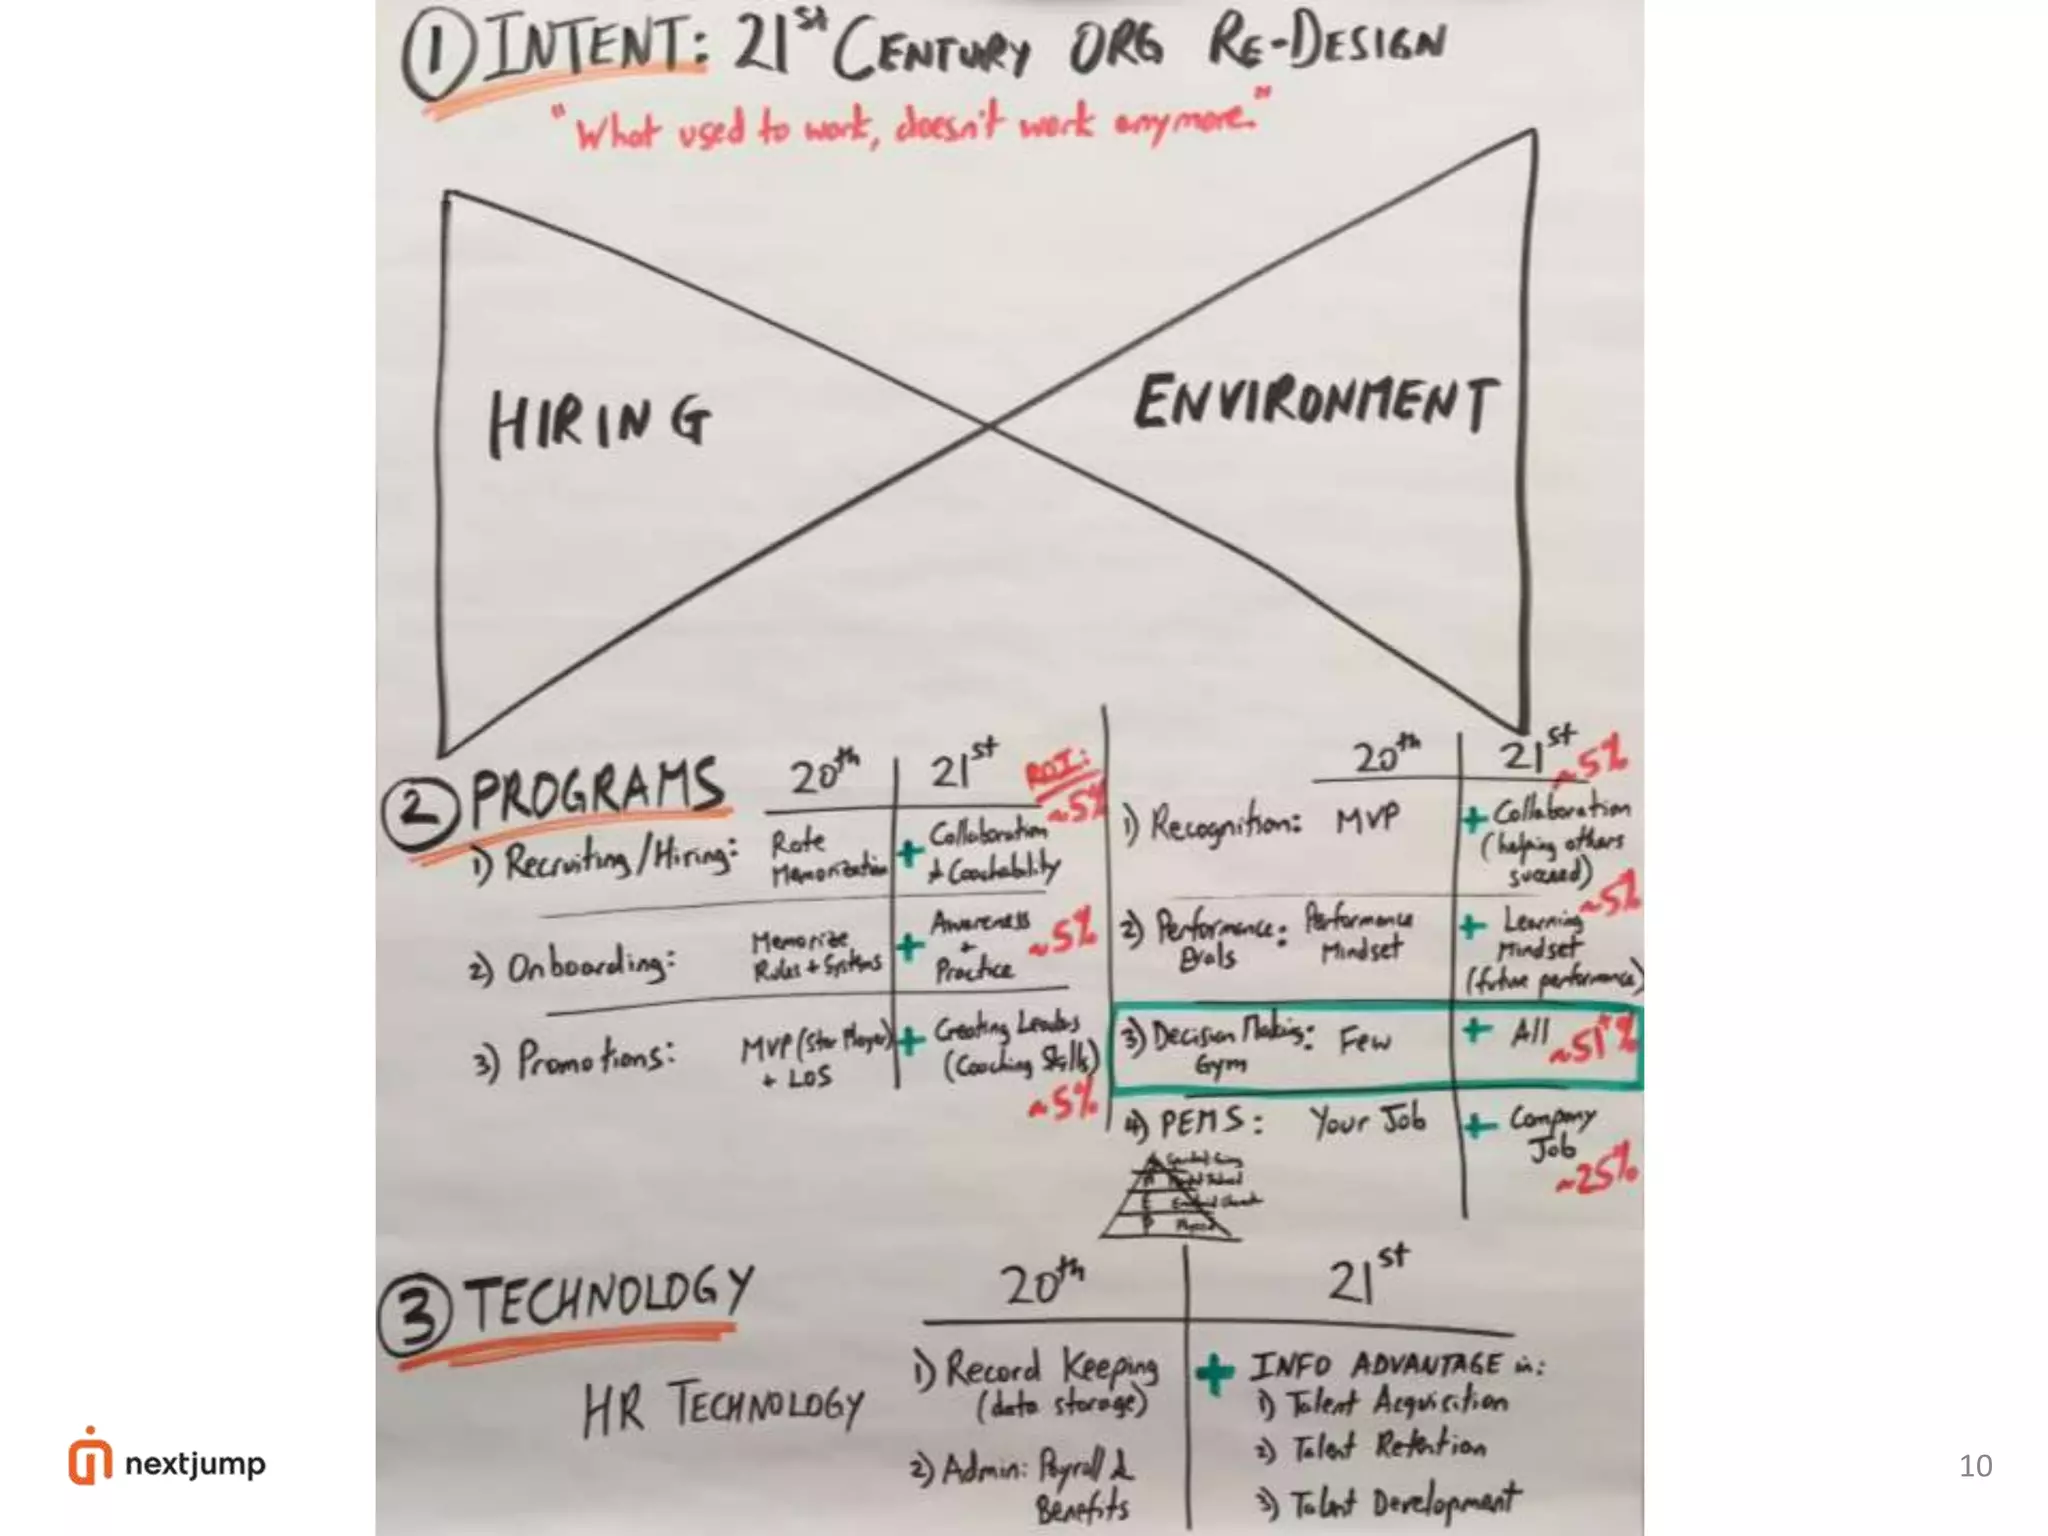 ① INTENT: 21st CENTURY ORG RE-DESIGN
"What used to work, doesn't work anymore."
HIRING
ENVIRONMENT
② PROGRAMS
20th
21st
ROI:
~5%
1) Recruiting/Hiring:
Rote
Memorization
+ Collaboration
& Coachability
2) Onboarding:
Memorize
Rules + Systems
+ Awareness
+
Practice
~5%
3) Promotions:
MVP (Star Player)
+ LOS
+ Creating Leaders
(Coaching Skills)
~5%
20th
21st
~5%
1) Recognition:
MVP
+ Collaboration
(helping others
succeed)
2) Performance:
Evals
Performance
Mindset
+ Learning
Mindset
(future performance)
~5%
3) Decision Making:
Gym
Few
+ All
~51+%
4) PEMS:
Your Job
+ Company
Job
~25%
③ TECHNOLOGY
HR TECHNOLOGY
20th
21st
1) Record Keeping
(data storage)
2) Admin: Payroll &
Benefits
+ INFO ADVANTAGE in:
1) Talent Acquisition
2) Talent Retention
3) Talent Development
nextjump
10